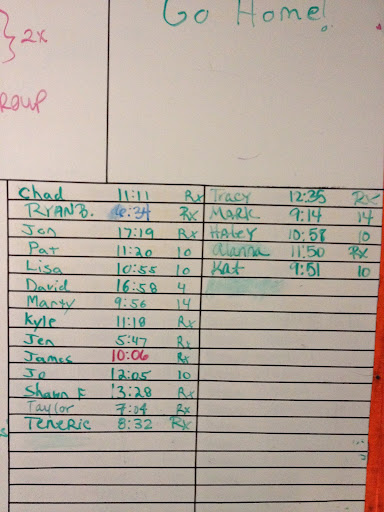 } 2x
Go Home!
ROUP
Chad 11:11 Rx
RYAN B. 6:34 Rx
Jon 17:19 Rx
Pat 11:20 10
Lisa 10:55 10
David 16:58 4
Marty 9:56 14
Kyle 11:18 Rx
Jen 5:47 Rx
James 10:06 Rx
Jo 12:05 10
Shawn F 13:28 Rx
Taylor 7:04 Rx
TENERIC 8:32 Rx
Tracy 12:35 Rx
MARK 9:14 14
Haley 10:58 10
alanna 11:50 Rx
Kat 9:51 10